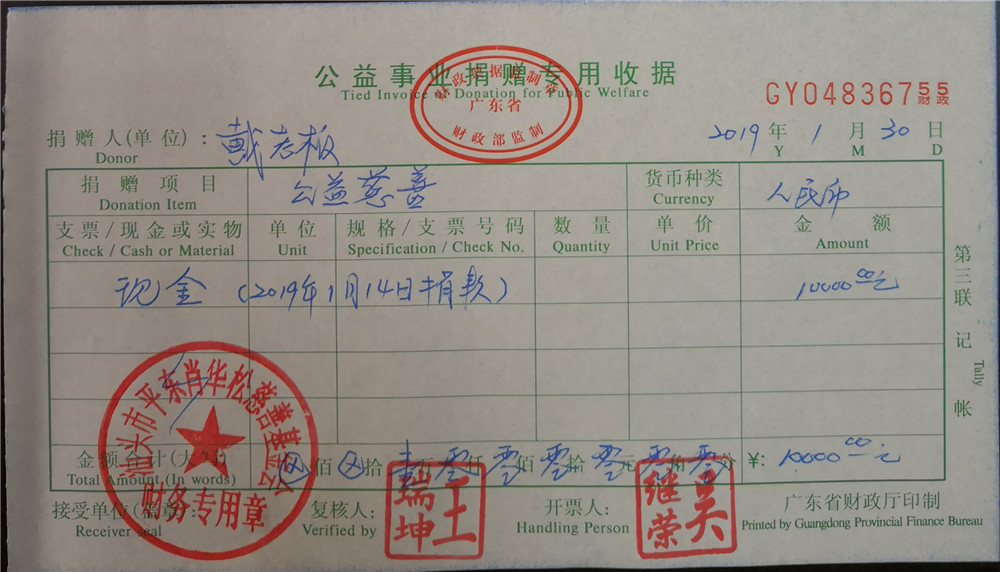 公益事业捐赠专用收据
Tied Invoice of Donation for Public Welfare
广东省
财政部监制
GY04836755
财政
捐赠人(单位):戴岩板
Donor
2019年1月30日
Y M D
捐赠项目 公益慈善 货币种类 人民币
Donation Item Currency
支票/现金或实物 单位 规格/支票号码 数量 单价 金额
Check / Cash or Material Unit Specification / Check No. Quantity Unit Price Amount
现金 (2019年1月14日捐款) 10000.00元
第三联 记帐
Tally
汕头市平东肖华松慈善基金会
财务专用章
金额合计(大写) 佰 拾 壹万零仟零佰零拾零元零角零分 ¥:10000.00元
Total Amount (In words)
接受单位(盖章): 复核人: 王瑞坤 开票人: 吴继荣 广东省财政厅印制
Receiver seal Verified by Handling Person Printed by Guangdong Provincial Finance Bureau